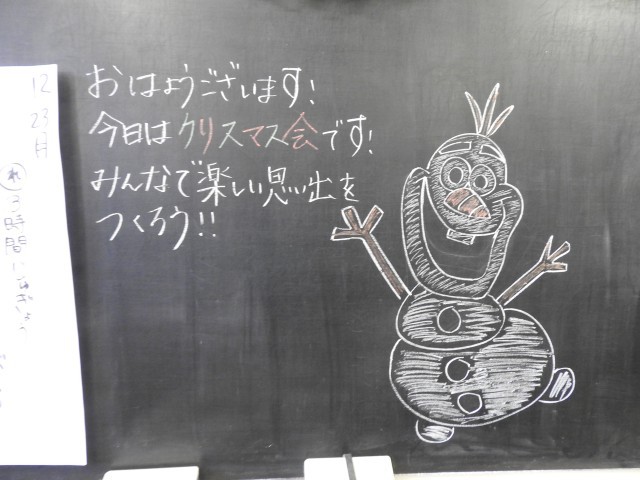 おはようございます!
今日はクリスマス会です!
みんなで楽しい思い出を
つくろう!!
12
23
月
れ
時間